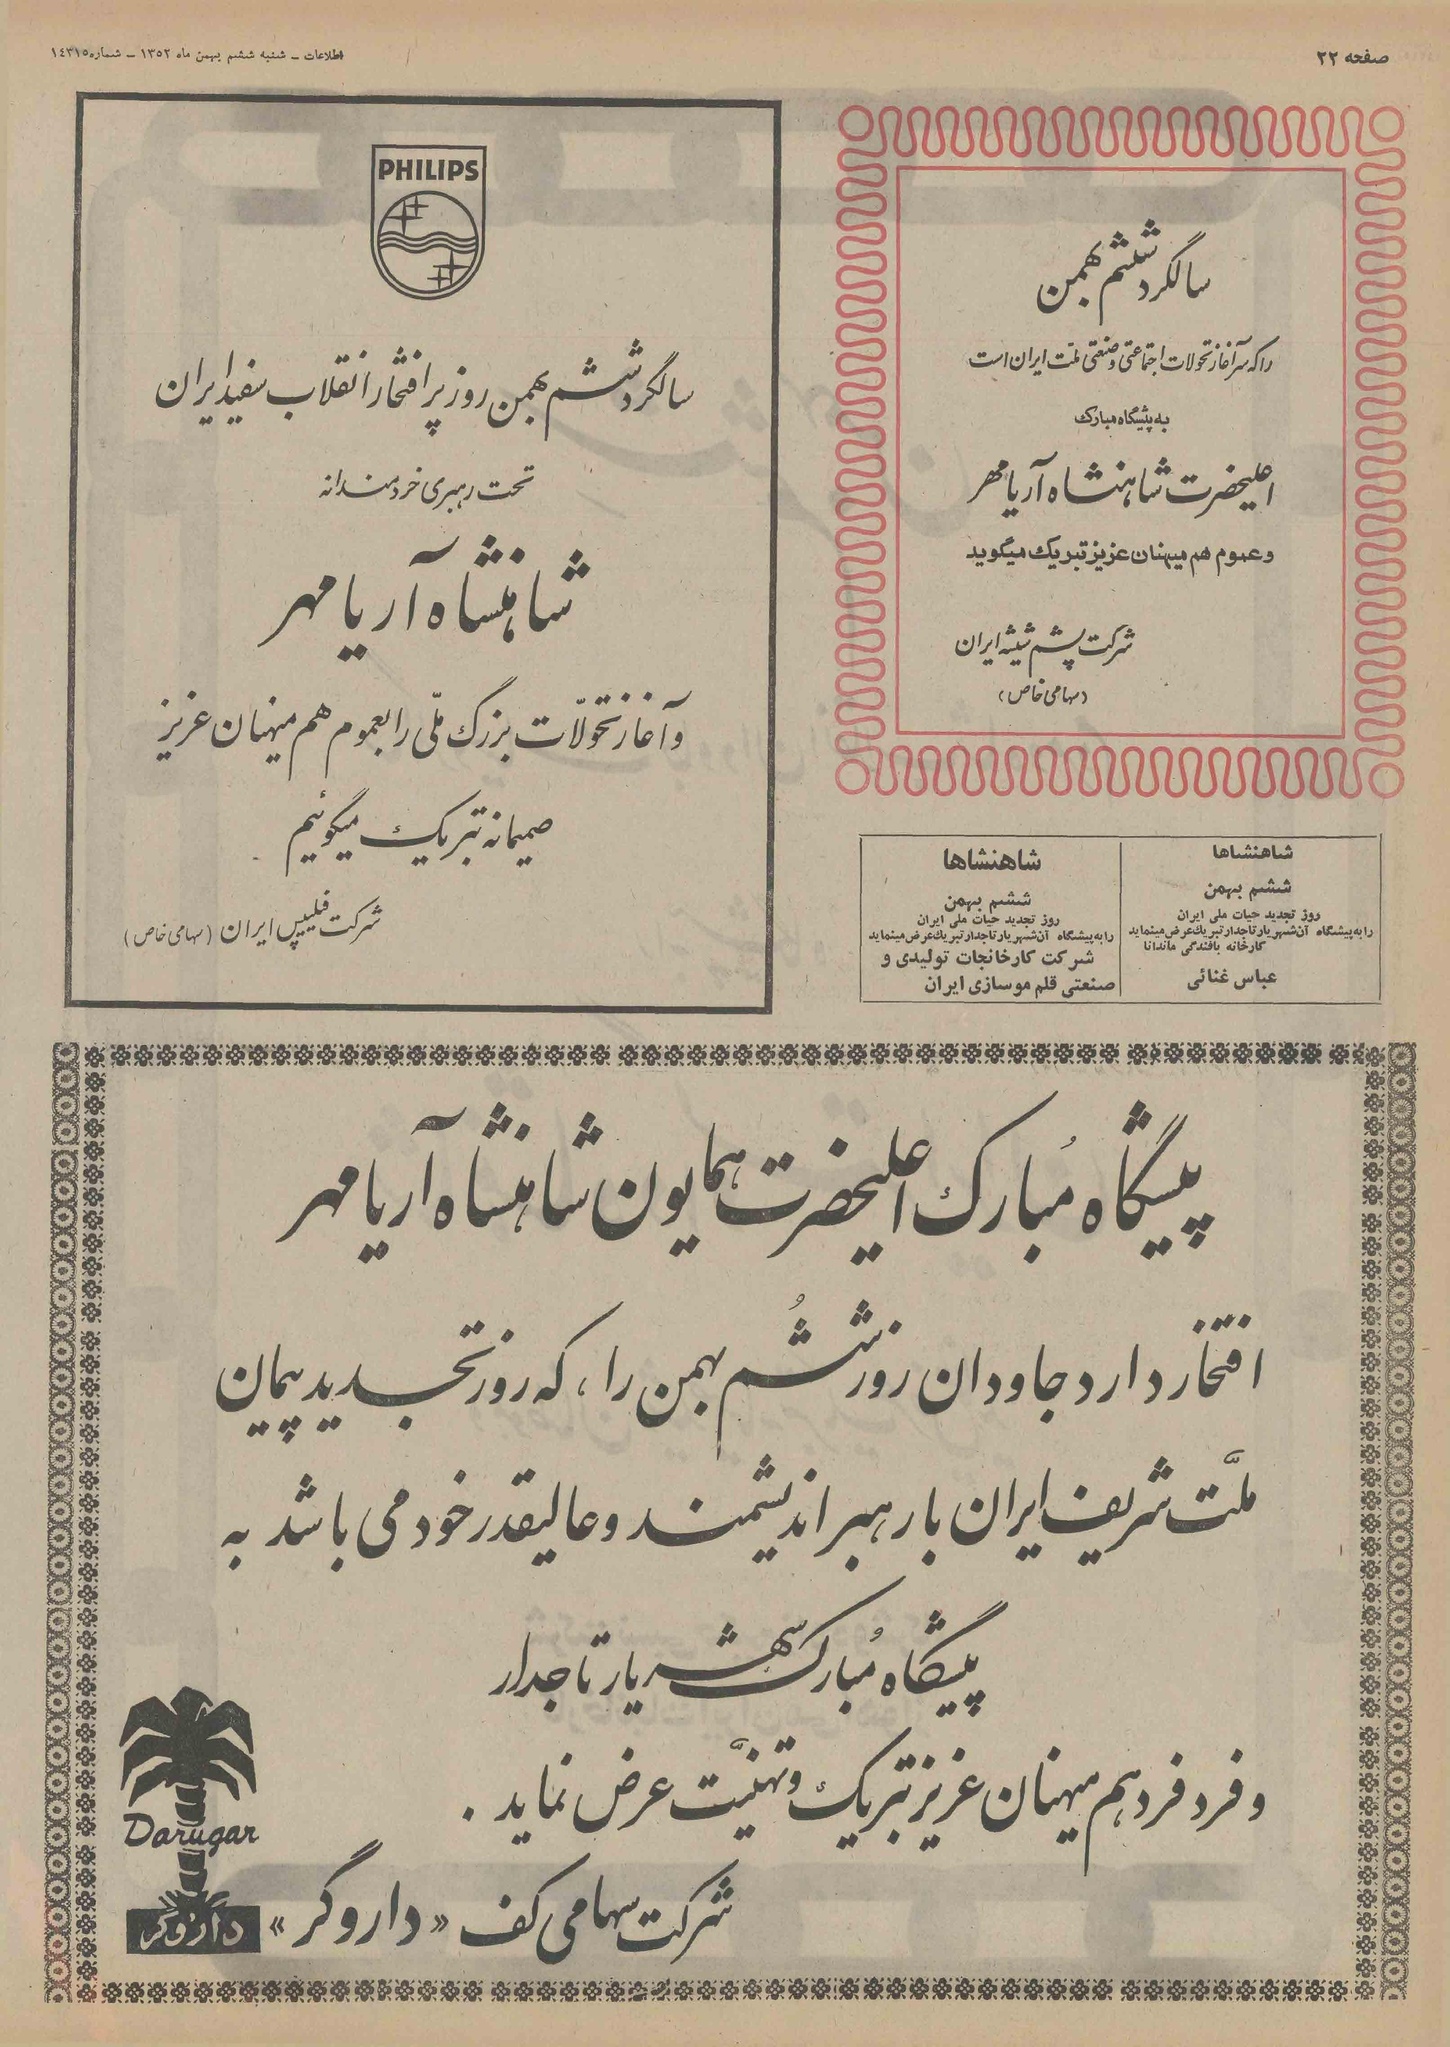 صفحه ۲۲
اطلاعات ـ شنبه ششم بهمن ماه ۱۳۵۲ ـ شماره ۱۴۳۱۵
سالگرد ششم بهمن
را که سرآغاز تحولات اجتماعی و صنعتی ملت ایران است
به پیشگاه مبارک
اعلیحضرت شاهنشاه آریامهر
و عموم هم میهنان عزیز تبریک میگوید
شرکت پشم شیشه ایران
(سهامی خاص)
PHILIPS
سالگرد ششم بهمن روز پر افتخار انقلاب سفید ایران
تحت رهبری خردمندانه
شاهنشاه آریامهر
و آغاز تحولّات بزرگ ملّی را بعموم هم میهنان عزیز
صمیمانه تبریک میگوئیم
شرکت فیلیپس ایران (سهامی خاص)
شاهنشاها
ششم بهمن
روز تجدید حیات ملی ایران
را به پیشگاه آن شهریار تاجدار تبریك عرض مینماید
کارخانه بافندگی ماندانا
عباس غنائی
شاهنشاها
ششم بهمن
روز تجدید حیات ملی ایران
را به پیشگاه آن شهریار تاجدار تبریك عرض مینماید
شرکت کارخانجات تولیدی و
صنعتی قلم موسازی ایران
پیشگاه مُبارک اعلیحضرت همایون شاهنشاه آریامهر
افتخار دارد جاودان روز ششُم بهمن را، که روز تجدید پیمان
ملّت شریف ایران با رهبر اندیشمند و عالیقدر خود می باشد به
پیشگاه مُبارک شهریار تاجدار
و فرد فرد هم میهنان عزیز تبریک و تهنیّت عرض نماید.
شرکت سهامی کف «داروگر»
Darugar
داروگر